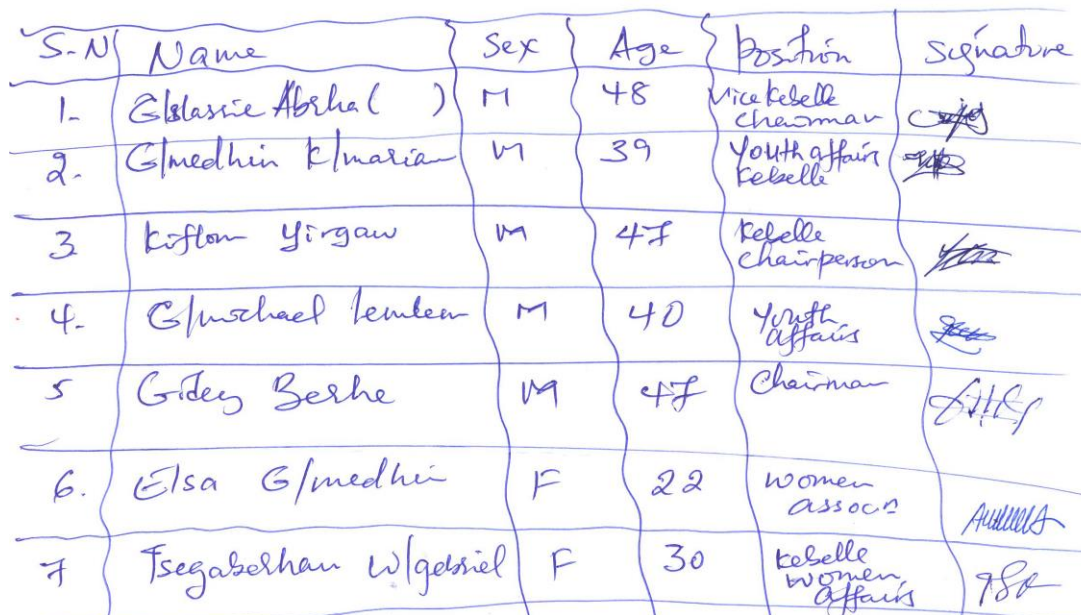 S-N Name Sex Age Position Signature
1- G/slassie Abrha ( ) M 48 Vice kebelle
chairman
2- G/medhin k/marian M 39 Youth affairs
kebelle
3 Kiflom Yirgaw M 47 kebelle
chairperson
4- G/michael lemlem M 40 Youth
affairs
5 Gidey Berhe M 47 Chairman
6. Elsa G/medhin F 22 women
assocn
7 Tsegaberhan W/gebriel F 30 kebelle
women
affairs